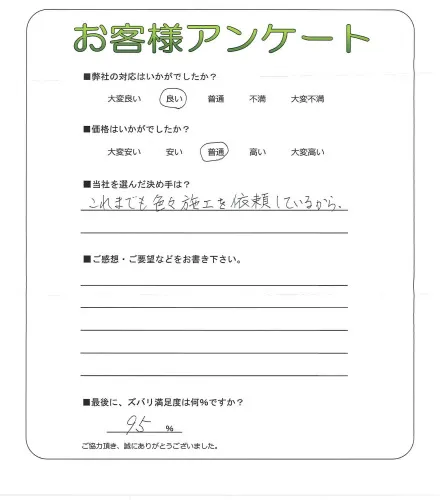 お客様アンケート
■弊社の対応はいかがでしたか？
大変良い 良い 普通 不満 大変不満
■価格はいかがでしたか？
大変安い 安い 普通 高い 大変高い
■当社を選んだ決め手は？
これまでも色々施工を依頼しているから。
■ご感想・ご要望などをお書き下さい。
■最後に、ズバリ満足度は何％ですか？
95 ％
ご協力頂き、誠にありがとうございました。